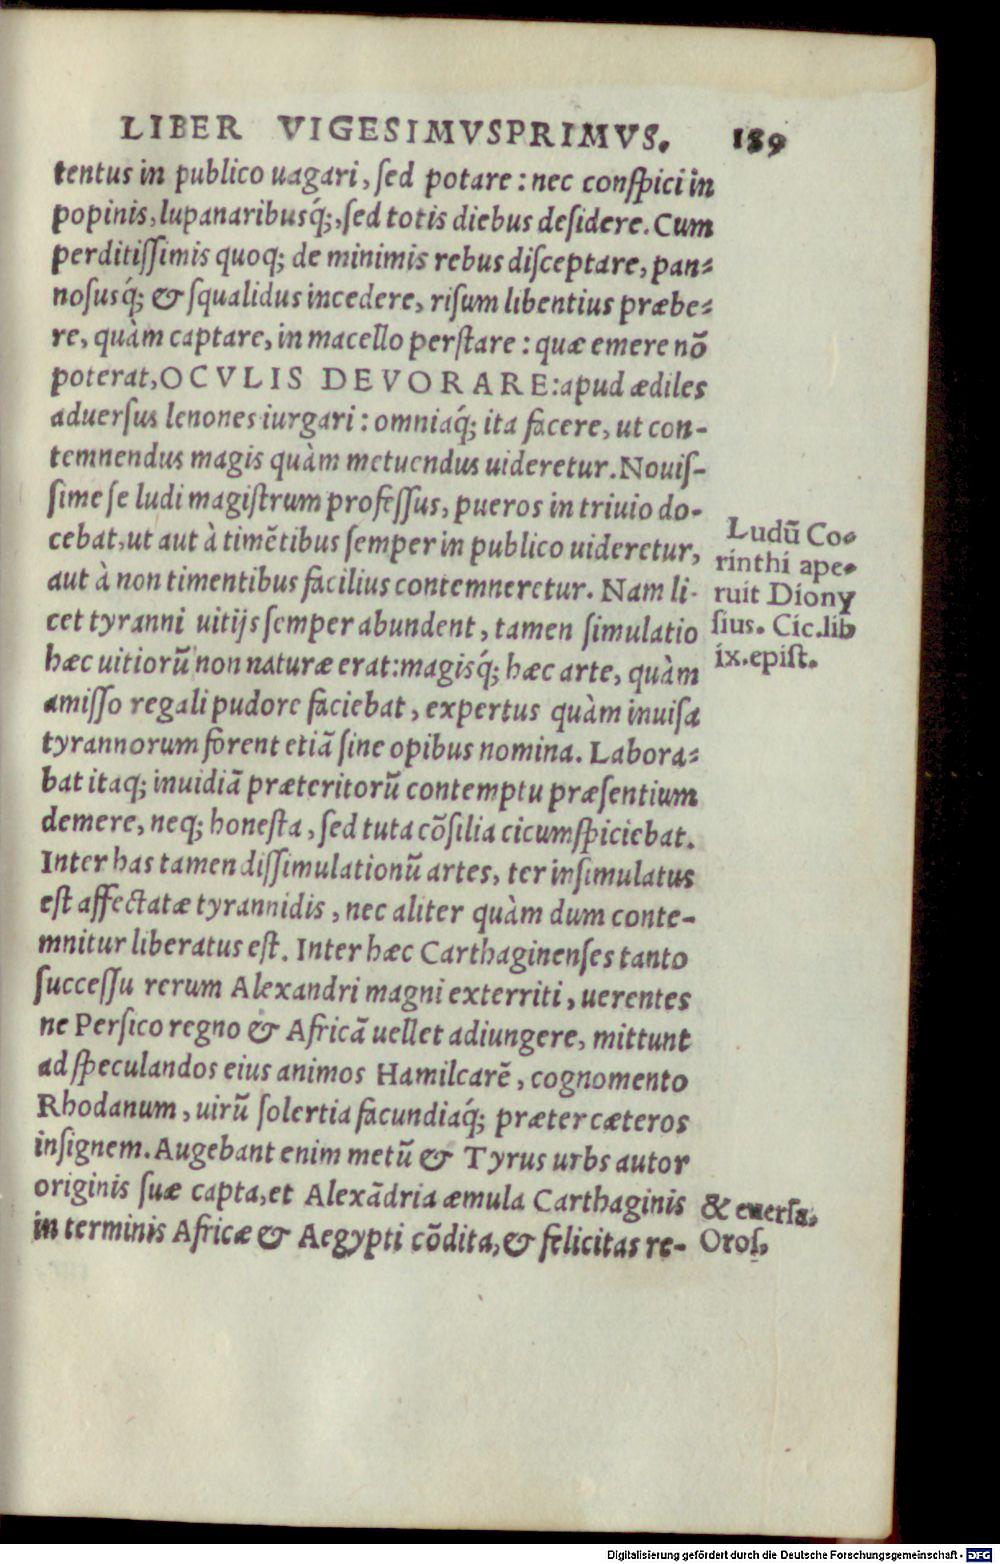 LIBER VIGESIMVSPRIMVS. 189
tentus in publico uagari, ſed potare: nec conſpici in
popinis, lupanaribusq́;, ſed totis diebus deſidere. Cum
perditiſſimis quoq; de minimis rebus diſceptare, pan⸗
noſusq́; & ſqualidus incedere, riſum libentius præbe⸗
re, quàm captare, in macello perſtare: quæ emere nõ
poterat, OCVLIS DEVORARE: apud ædiles
aduerſus lenones iurgari: omniaq́; ita facere, ut con-
temnendus magis quàm metuendus uideretur. Nouiſ-
ſime ſe ludi magiſtrum profeſſus, pueros in triuio do-
cebat, ut aut à timẽtibus ſemper in publico uideretur,
aut à non timentibus facilius contemneretur. Nam li-
cet tyranni uitijs ſemper abundent, tamen ſimulatio
hæc uitiorũ non naturæ erat: magisq́; hæc arte, quàm
amiſſo regali pudore faciebat, expertus quàm inuiſa
tyrannorum forent etiã ſine opibus nomina. Labora⸗
bat itaq; inuidiã præteritorũ contemptu præſentium
demere, neq; honeſta, ſed tuta cõſilia cicumſpiciebat.
Inter has tamen diſſimulationũ artes, ter inſimulatus
eſt affectatæ tyrannidis, nec aliter quàm dum conte-
mnitur liberatus eſt. Inter hæc Carthaginenſes tanto
ſucceſſu rerum Alexandri magni exterriti, uerentes
ne Perſico regno & Africã uellet adiungere, mittunt
ad ſpeculandos eius animos Hamilcarẽ, cognomento
Rhodanum, uirũ ſolertia facundiaq́; præter cæteros
inſignem. Augebant enim metũ & Tyrus urbs autor
originis ſuæ capta, et Alexãdria æmula Carthaginis
in terminis Africæ & Aegypti cõdita, & felicitas re-
Ludũ Co⸗
rinthi ape⸗
ruit Diony
ſius. Cic. lib
ix. epiſt.
& euerſa,
Oroſ,
Digitalisierung gefördert durch die Deutsche Forschungsgemeinschaft - DFG